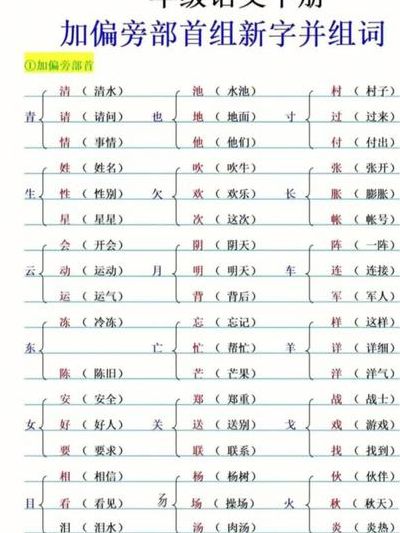 年级语文下册
加偏旁部首组新字并组词
①加偏旁部首
清（清水） 池（水池） 村（村子）
青 请（请问） 也 地（地面） 寸 过（过来）
情（事情） 他（他们） 付（付出）
姓（姓名） 吹（吹牛） 张（张开）
生 性（性别） 欠 欢（欢乐） 长 胀（膨胀）
星（星星） 次（这次） 帐（帐号）
会（开会） 阴（阴天） 阵（一阵）
云 动（运动） 月 明（明天） 车 连（连接）
运（运气） 背（背后） 军（军人）
冻（冷冻） 忘（忘记） 样（这样）
东 亡 忙（帮忙） 羊 详（详细）
陈（陈旧） 芒（芒果） 洋（洋气）
安（安全） 郑（郑重） 战（战士）
女 好（好人） 关 送（送别） 戈 戏（游戏）
要（要求） 联（联系） 找（找到）
相（相信） 杨（杨树） 伙（伙伴）
目 看（看见） 𠃓 场（操场） 火 秋（秋天）
泪（泪水） 汤（肉汤） 炎（炎热）